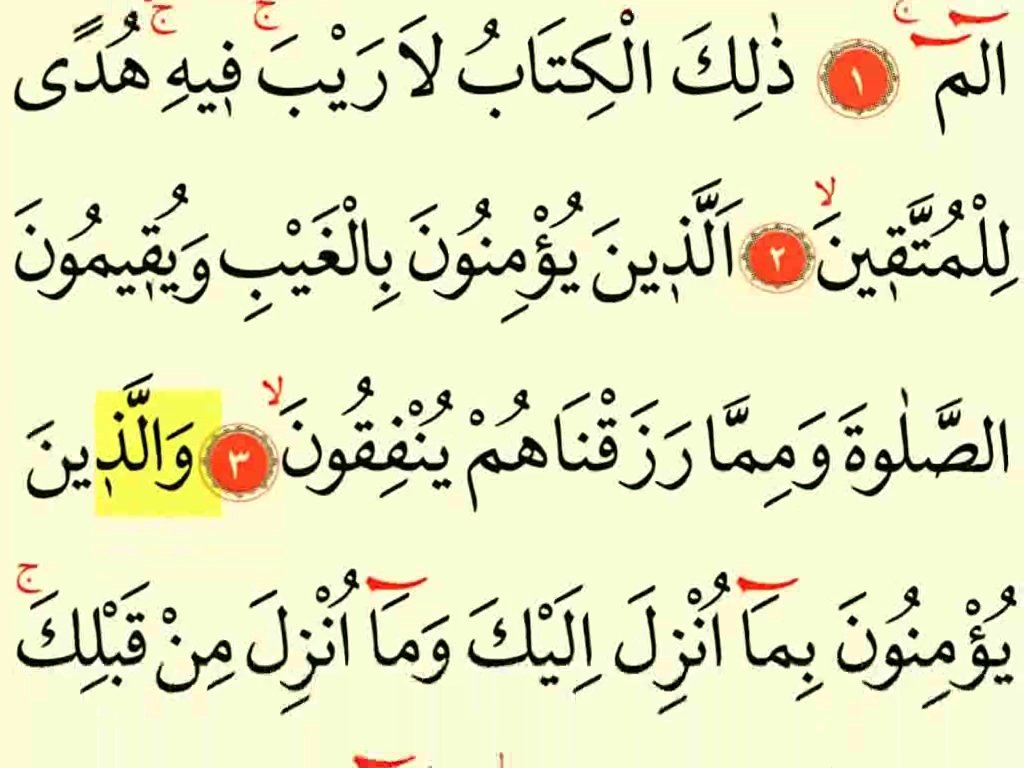 الٓمٓ ۚ ﴿١﴾ ذٰلِكَ الْكِتَابُ لَا رَيْبَ ۚ فٖيهِ ۚ هُدًى
لِلْمُتَّقٖينَ ۙ ﴿٢﴾ اَلَّذٖينَ يُؤْمِنُونَ بِالْغَيْبِ وَيُقٖيمُونَ
الصَّلٰوةَ وَمِمَّا رَزَقْنَاهُمْ يُنْفِقُونَ ۙ ﴿٣﴾ وَالَّذٖينَ
يُؤْمِنُونَ بِمَٓا اُنْزِلَ اِلَيْكَ وَمَٓا اُنْزِلَ مِنْ قَبْلِكَ ۚ